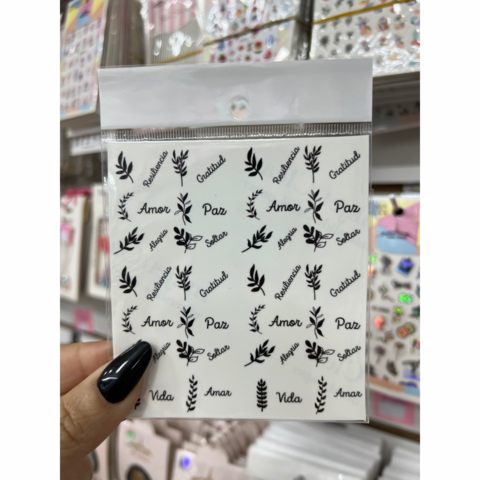 Resiliencia Gratitud Resiliencia Gratitud
Amor Paz Amor Paz
Alegría Soltar Alegría Soltar
Resiliencia Gratitud Resiliencia Gratitud
Amor Paz Amor Paz
Alegría Soltar Alegría Soltar
Vida Amar Vida Amar